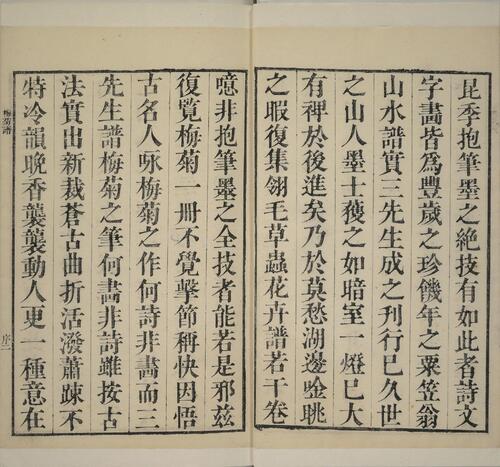 昆季抱筆墨之絶技有如此者詩文
字畵皆爲豐歲之珍饑年之粟笠翁
山水譜實三先生成之刊行巳久世
之山人墨士獲之如暗室一燈巳大
有裨於後進矣乃於莫愁湖邊唫眺
之暇復集翎毛草蟲花卉譜若干卷
噫非抱筆墨之全技者能若是邪茲
復覽梅菊一冊不覺擊節稱快因悟
古名人咏梅菊之作何詩非畵而三
先生譜梅菊之筆何畵非詩雖按古
法實出新裁蒼古曲折活潑蕭踈不
特冷韻晚香襲襲動人更一種意在
梅菊譜
序二